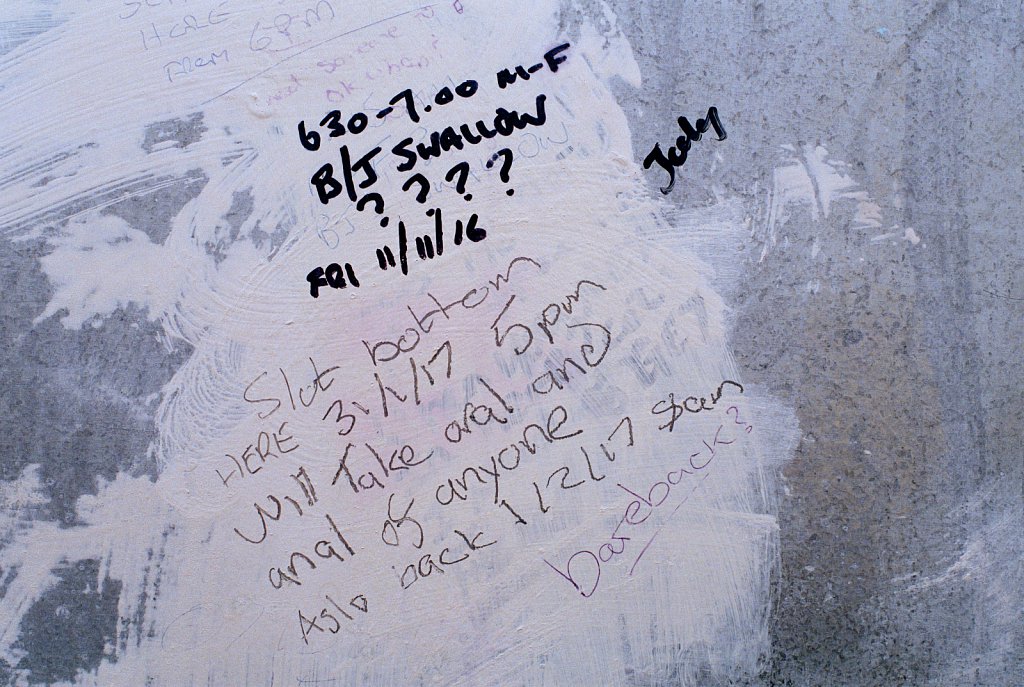 HERE
FROM 6PM
630-7.00 M-F
B/J SWALLOW
? ? ? ?
FRI 11/11/16
Slut bottom
HERE 31/1/17 5pm
Will Take oral and
anal of anyone
Aslo back 1/2/17
bareback?